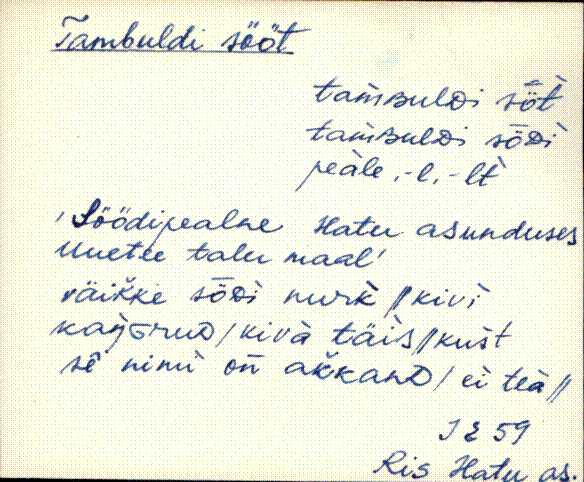 Tambuldi sööt
tamʙulᴅi sö̀t̀
tamʙulᴅi sȫᴅi
peale, -l, -lt
'Söödipealne Hatu asunduses
Uuetee talu maal'
väikke sȫᴅi nurk // kivi
kivà täis // kust
sē nimi on akkanᴅ / ei teà //
J E 59
Ris Hatu as.